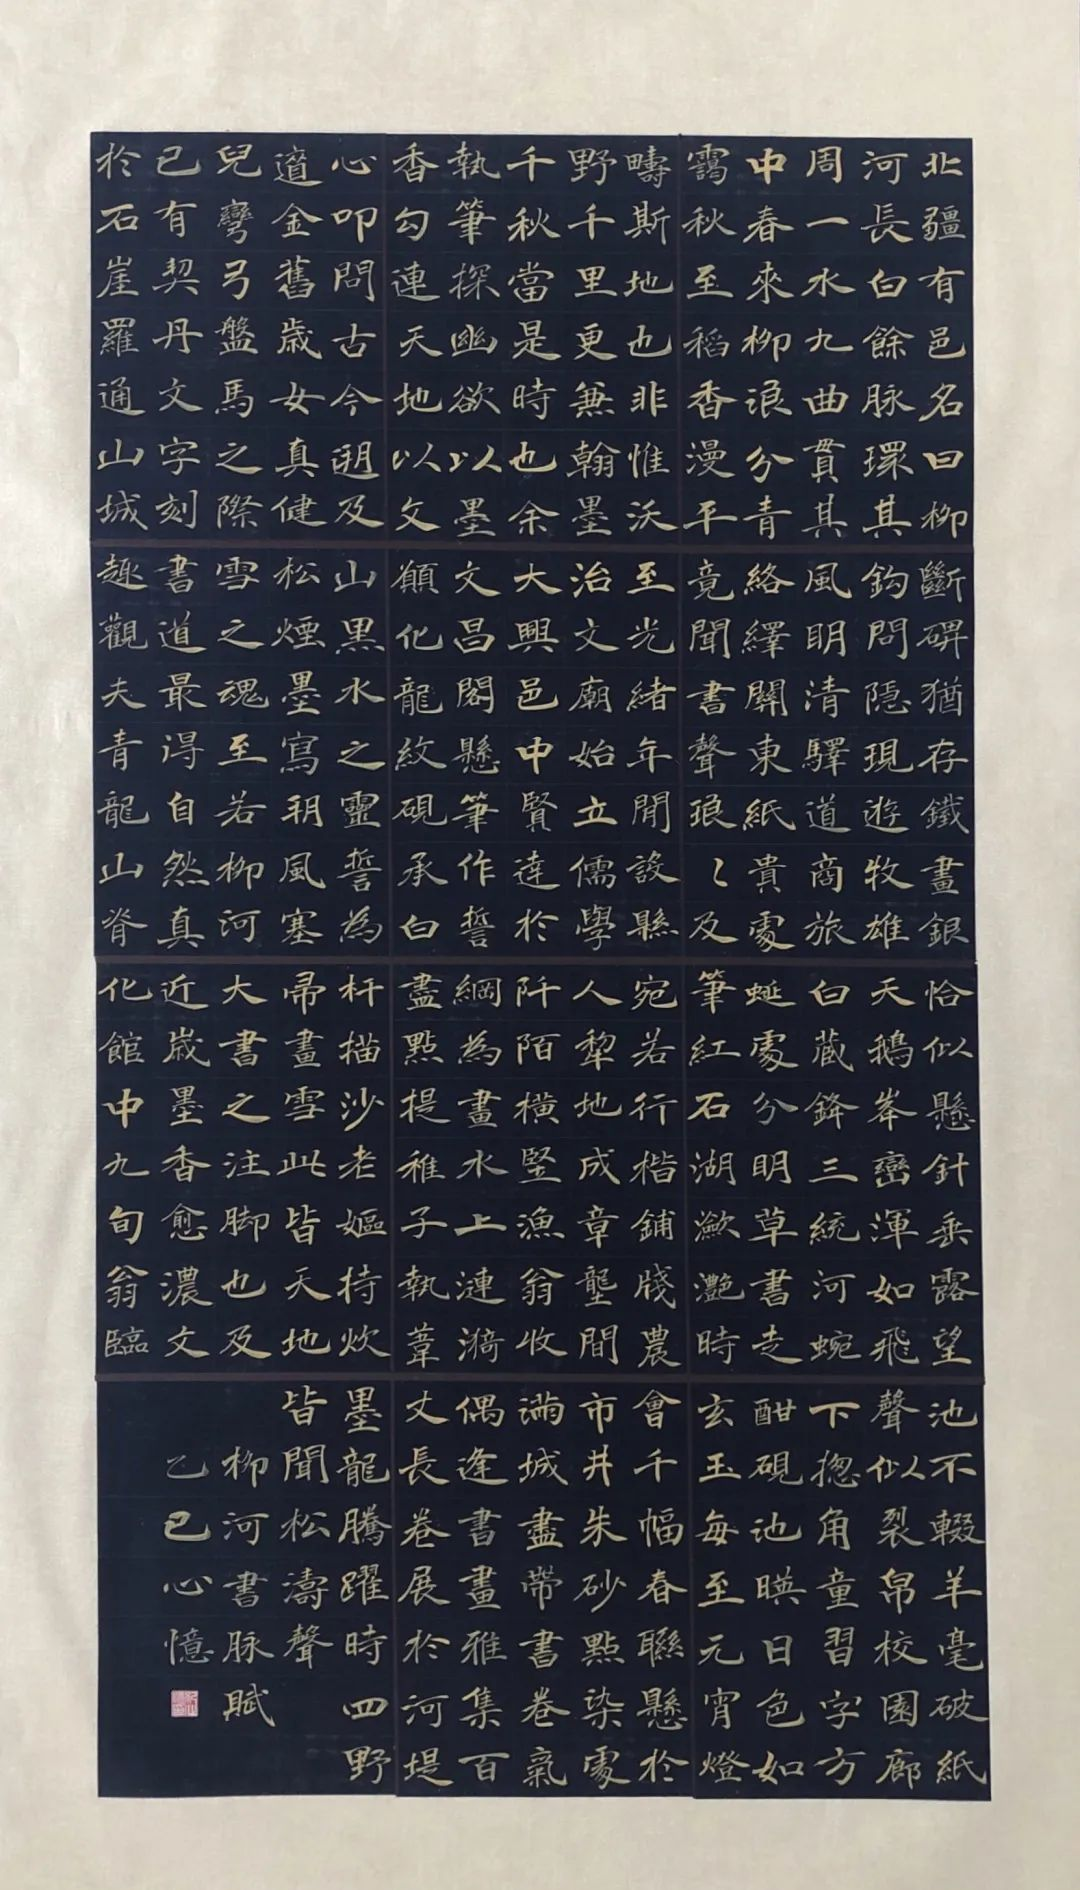 北疆有邑名曰柳
河長白餘脉環其
周一水九曲貫其
中春來柳浪分青
靄秋至稻香漫平
疇斯地也非惟沃
野千里更兼翰墨
千秋當是時也余
執筆探幽欲以墨
香勾連天地以文
心叩問古今遡及
遼金舊歲女真健
兒彎弓盤馬之際
已有契丹文字刻
於石崖羅通山城
斷碑猶存鐵畫銀
鈎問隱現遊牧雄
風明清驛道商旅
絡繹關東紙貴處
竟聞書聲琅〻及
至光緒年間設縣
治文廟始立儒學
大興邑中賢達於
文昌閣懸筆作誓
願化龍紋硯承白
山黑水之靈誓為
松煙墨寫朔風塞
雪之魂至若柳河
書道最得自然真
趣觀夫青龍山脊
恰似懸針垂露望
天鵝峯巒渾如飛
白藏鋒三統河蜿
蜒處分明草書走
筆紅石湖瀲灔時
宛若行楷鋪牋農
人犁地成章壟間
阡陌橫竪漁翁收
綱為畫水上漣漪
盡點提稚子執葦
杆描沙老嫗持炊
帚畫雪此皆天地
大書之注脚也及
近歲墨香愈濃文
化館中九旬翁臨
池不輟羊毫破紙
聲似裂帛校園廊
下揔角童習字方
酣硯池暎日色如
玄玉每至元宵燈
會千幅春聯懸於
市井朱砂點染處
滿城盡帶書卷氣
偶逢書畫雅集百
丈長卷展於河堤
墨龍騰躍時四野
皆聞松濤聲
柳河書脉賦
乙巳心憶